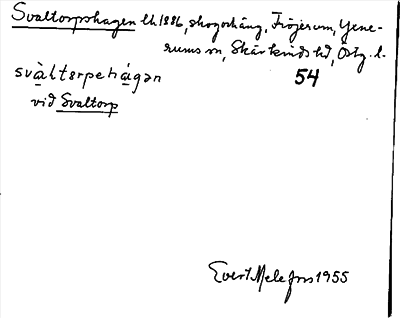 Svaltorpshagen lh 1886, skog o häng, Fröjerum, Yxne-
rums sn, Skärkinds hd, Östg. l.
svàltərpehágən 54
vid Svaltorp
Evert Melefors 1955